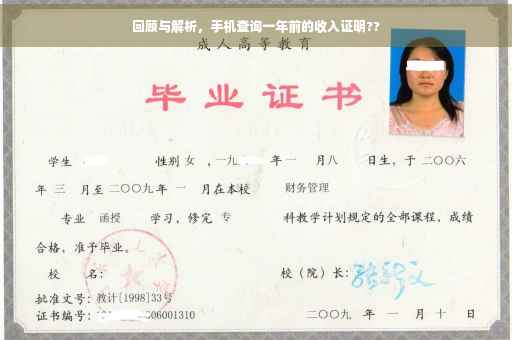 回顾与解析，手机查询一年前的收入证明??
成人高等教育
毕业证书
学生 性别 女 ，一九 年 一 月八 日生，于 二〇〇六
年 三 月至 二〇〇九 年 一 月在本校 财务管理
专业 函授 学习，修完 专 科教学计划规定的全部课程，成绩
合格，准予毕业。
校 名： 校（院）长：
批准文号：教计[1998]33号
证书编号： 06001310 二〇〇九 年 一 月 十 日